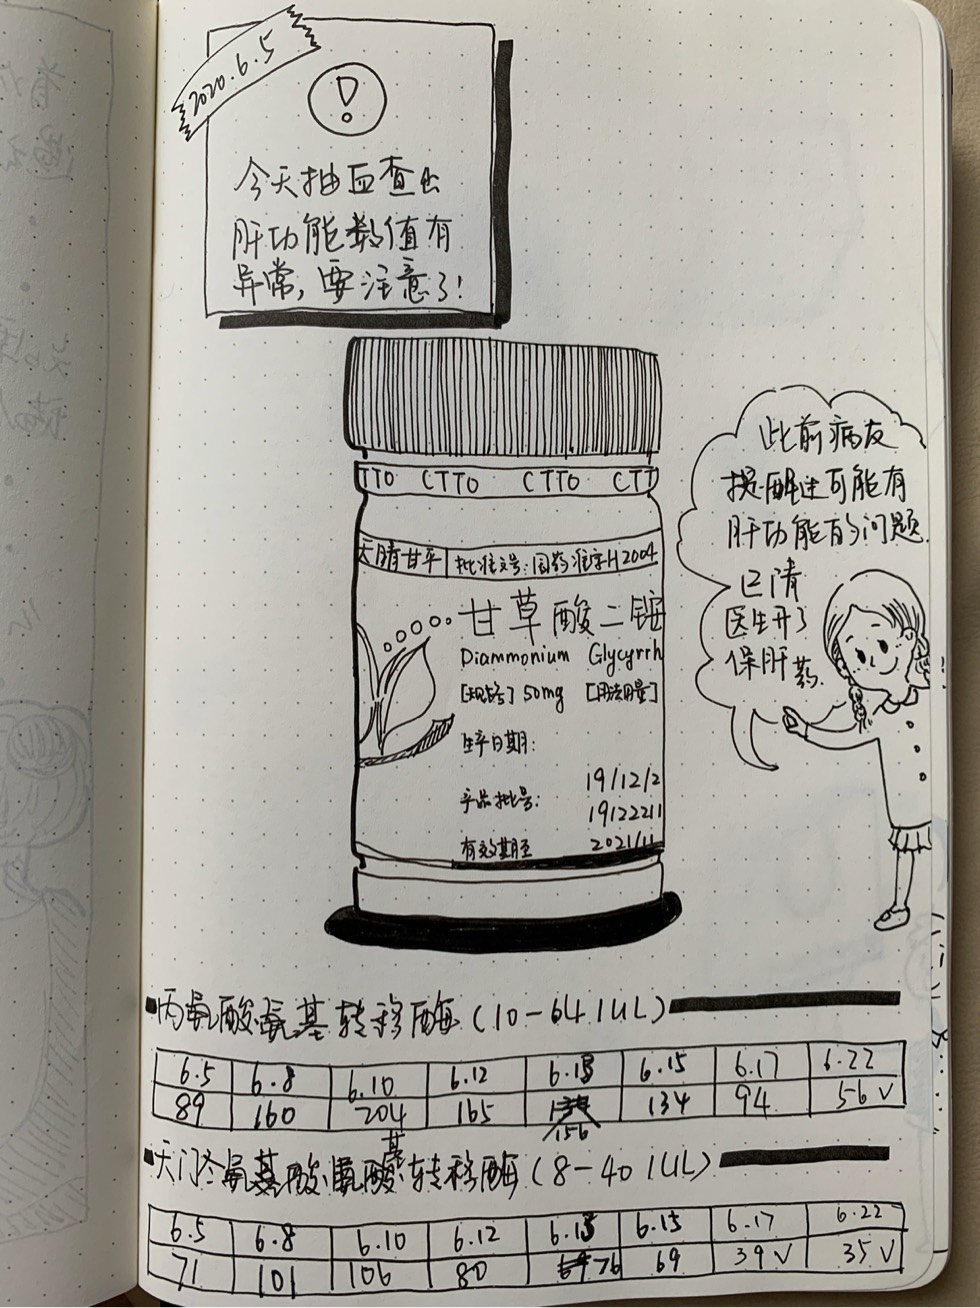 2020.6.5
!
今天抽血查出
肝功能数值有
异常,要注意了!
TTO CTTO CTTO CTT
天晴甘平 批准文号:国药准字H2004
甘草酸二铵
Diammonium Glycyrrh
[规格] 50mg [用法用量]
生产日期:
19/12/2
产品批号:
19122211
有效期至 2021/11
此前病友
提醒过可能有
肝功能的问题.
已请
医生开了
保肝药.
丙氨酸氨基转移酶(10-64IUL)
6.5 6.8 6.10 6.12 6.13 6.15 6.17 6.22
89 160 204 165 134 94 56 V
156
天门冬氨基酸氨基酸转移酶(8-40IUL)
6.5 6.8 6.10 6.12 6.13 6.15 6.17 6.22
71 101 106 80 76 69 39 V 35 V